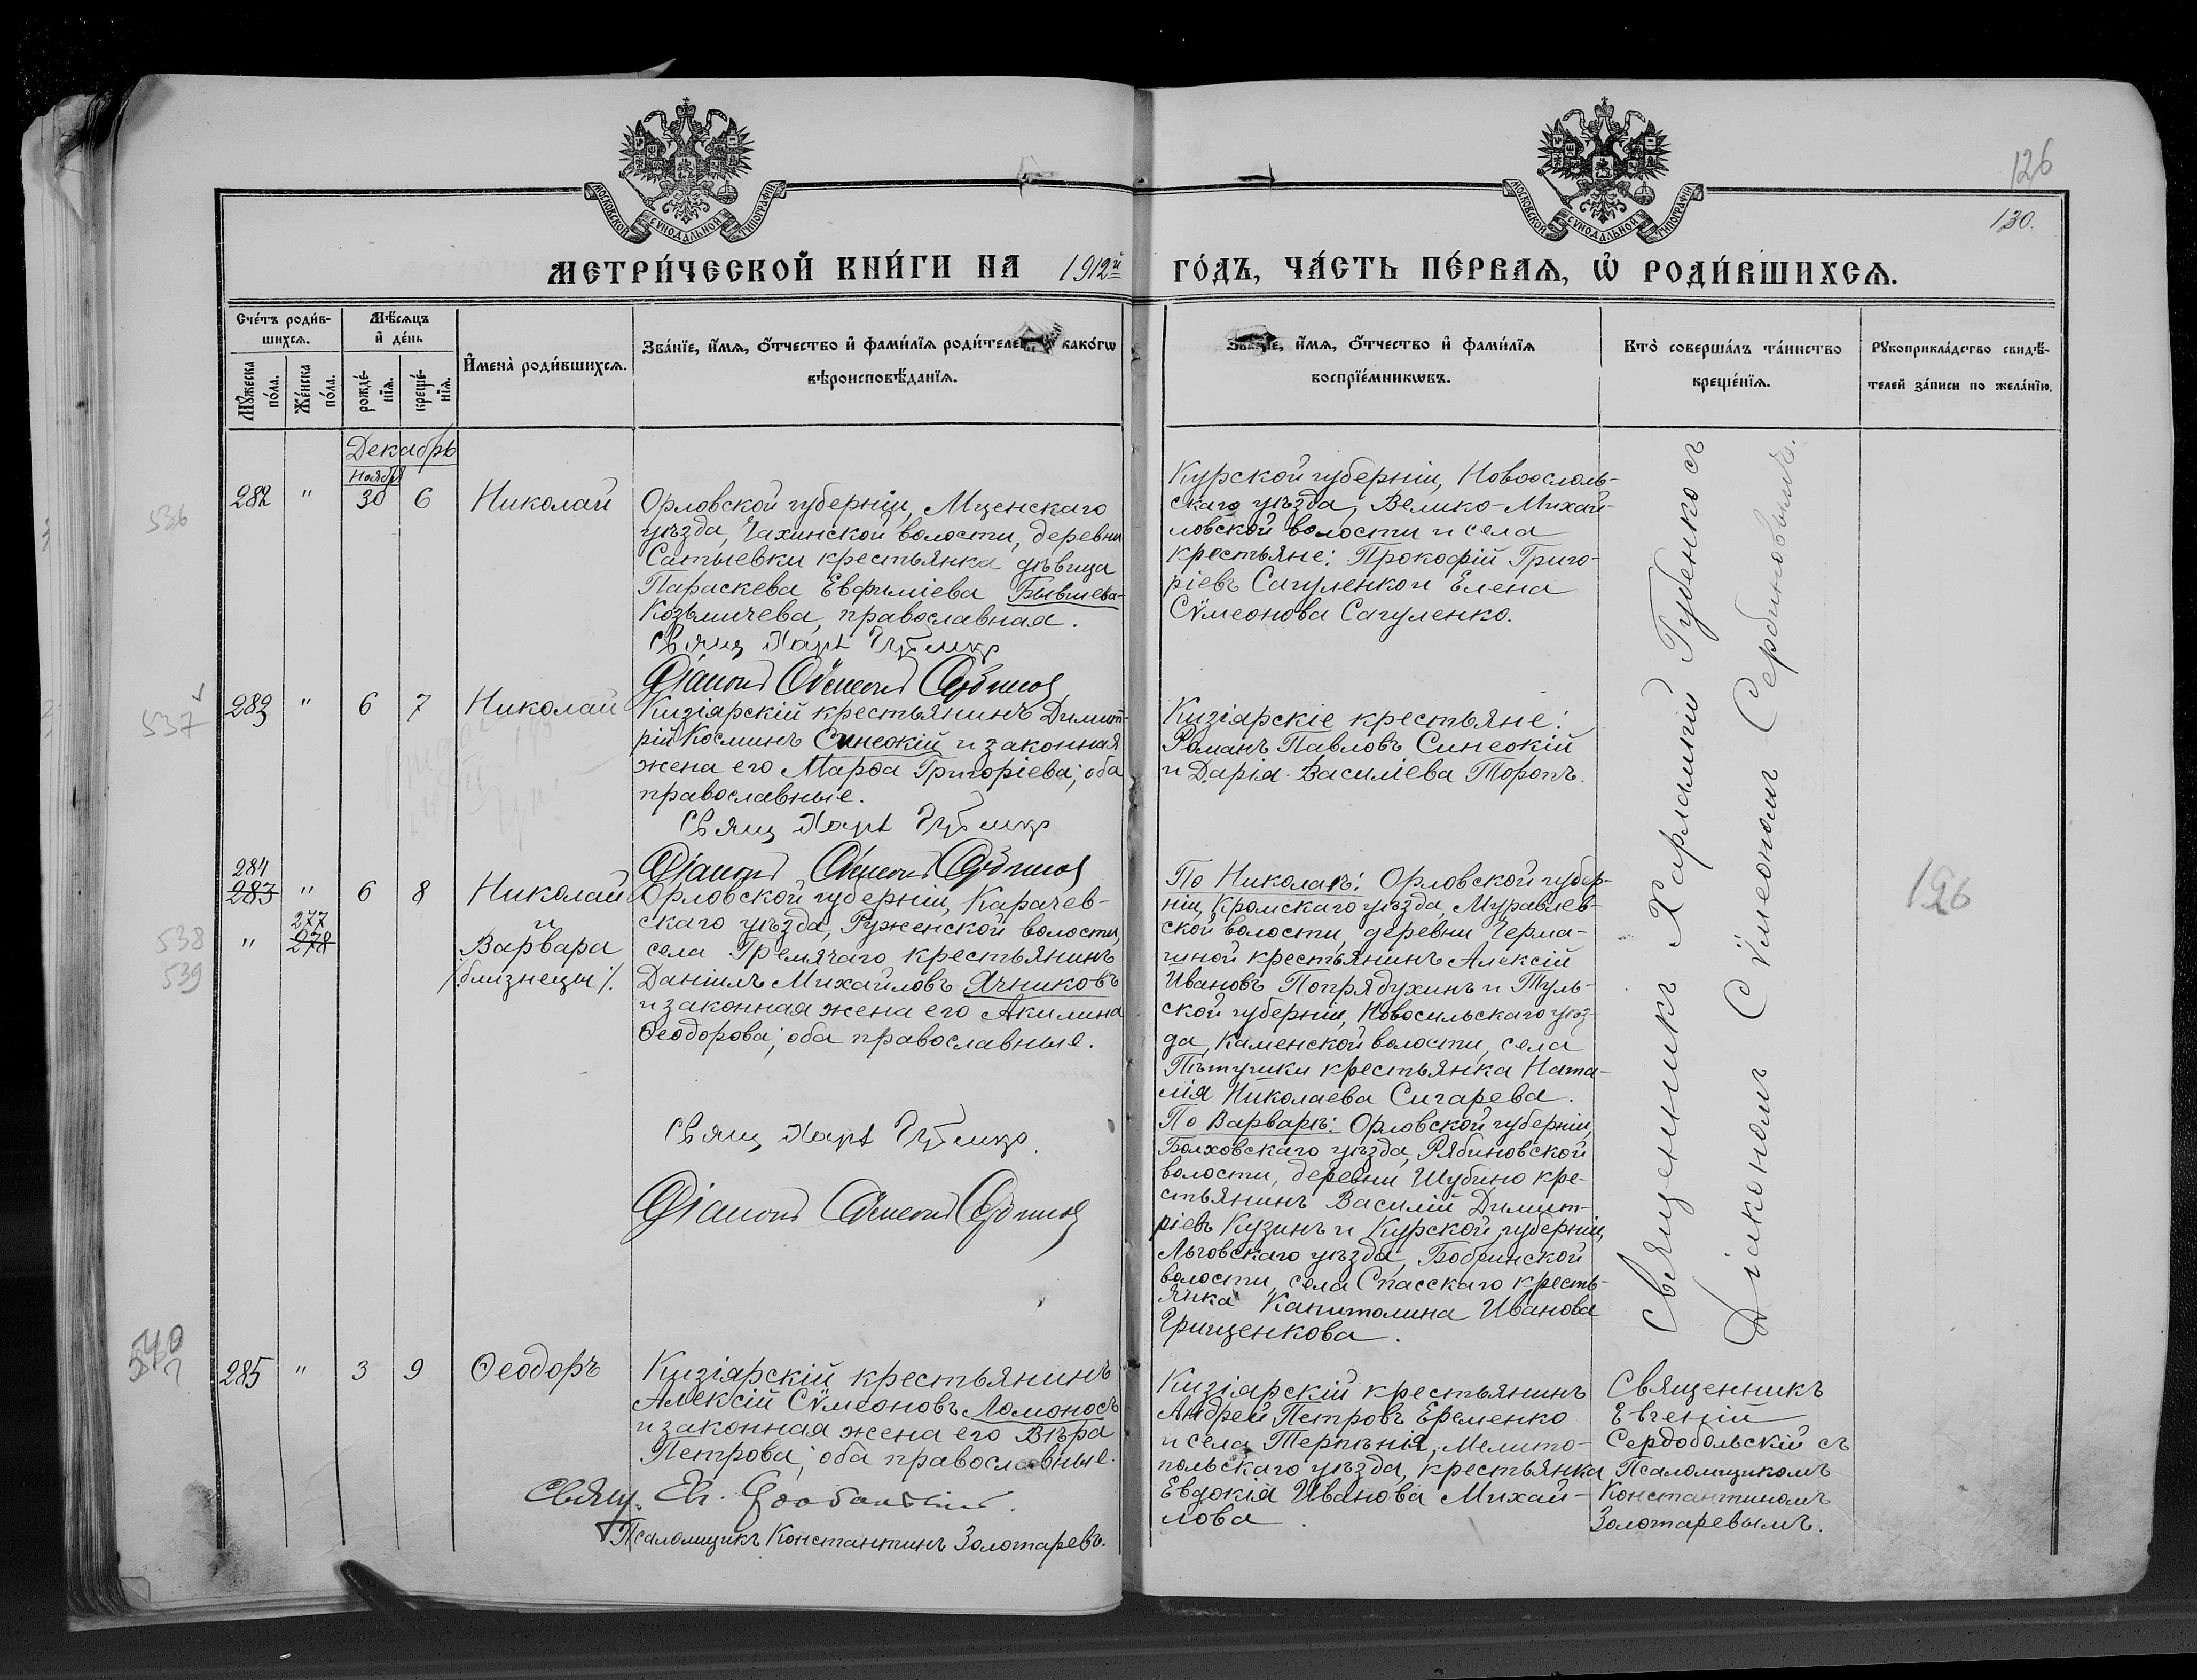 126
130.
МОСКОВСКОЙ СѴНОДАЛЬНОЙ ТИПОГРАФІИ
МОСКОВСКОЙ СѴНОДАЛЬНОЙ ТИПОГРАФІИ
МЕТРИ́ЧЕСКОЙ КНИ́ГИ НА 1912й ГО́ДЪ, ЧА́СТЬ ПЕ́РВАѦ, Ѿ РОДИ́ВШИХСѦ.
Сче́тъ роди́в-
шихсѧ.
Мꙋ́жеска по́ла.
Же́нска по́ла.
Мѣ́сяцъ
и҆ де́нь
рожде́-
нїѧ.
креще́-
нїѧ.
И҆мена̀ роди́вшихсѧ.
Зва́нїе, и҆́мѧ, ѻ҆́тчество и҆ фами́лїѧ роди́телей, како́гѡ
вѣроисповѣ́данїѧ.
Зва́нїе, и҆́мѧ, ѻ҆́тчество и҆ фами́лїѧ
воспрїе́мникѡвъ.
Кто̀ соверша́лъ та́инство
креще́нїѧ.
Рꙋкоприкла́дство свидѣ́-
телей за́писи по жела́нїю.
Декабрь
Ноября
536
282 " 30 6 Николай
Орловской губерніи, Мценскаго
уѣзда, Чахинской волости, деревни
Сатыевки крестьянка дѣвица
Параскева Евфиміева Бывшева-
Козьмичева, православная.
Свящ Харл Губенко
Діаконъ Сѵмеонъ Сербиновъ
Курской губерніи, Новооскль-
скаго уѣзда, Велико-Михай-
ловской волости и села
крестьяне: Прокофій Григо-
ріевъ Сагуленко и Елена
Сѵмеонова Сагуленко.
537
283 " 6 7 Николай
Кизіярскій крестьянинъ Димит-
рій Косминъ Синеокій и законная
жена его Марѳа Григоріева; оба
православные.
Свящ Харл Губенко
Діаконъ Сѵмеонъ Сербиновъ
Кизіярскіе крестьяне:
Романъ Павловъ Синеокій
и Дарія Василіева Торопъ.
284
283 " 6 8 Николай
277
538 " 278 и
Варвара
539
/близнецы/.
Орловской губерніи, Карачев-
скаго уѣзда, Руженской волости,
села Гремячаго крестьянинъ
Даніилъ Михайловъ Ячниковъ
и законная жена его Акилина
Ѳеодорова; оба православные.
Свящ Харл Губенко.
Діаконъ Сѵмеонъ Сербиновъ
По Николаѣ: Орловской губер-
ніи, Кромскаго уѣзда, Муравлев-
ской волости, деревни Черма-
шной крестьянинъ Алексій
Ивановъ Попрядухинъ и Туль-
ской губерніи, Новосильскаго уѣз-
да, Каменской волости, села
Пѣтушки крестьянка Ната-
лія Николаева Сигарева.
По Варварѣ: Орловской губерніи,
Болховскаго уѣзда, Рябиновской
волости, деревни Шубино кре-
стьянинъ Василій Димит-
ріевъ Кузинъ и Курской губерніи,
Льговскаго уѣзда, Бобринской
волости, села Спасскаго кресть-
янка Капитолина Иванова
Грищенкова.
Священникъ Харлампій Губенко съ
Діакономъ Сѵмеономъ Сербиновымъ.
126
540
285 " 3 9 Ѳеодоръ
Кизіярскій крестьянинъ
Алексій Сѵмеоновъ Ломоносъ
и законная жена его Вѣра
Петрова; оба православные.
Свящ. Ев. Сердобольскій.
Псаломщикъ Константинъ Золотаревъ.
Кизіярскій крестьянинъ
Андрей Петровъ Еременко
и села Терпѣнія, Мелито-
польскаго уѣзда, крестьянка
Евдокія Иванова Михай-
лова.
Священникъ
Евгеній
Сердобольскій съ
Псаломщикомъ
Константиномъ
Золотаревымъ.